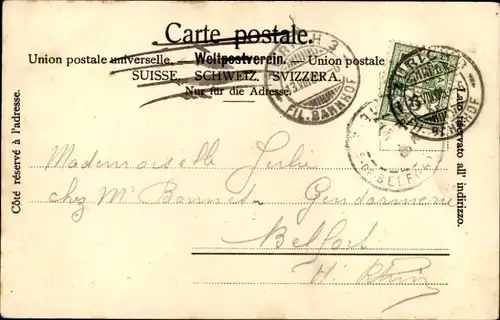 Carte postale.
Union postale universelle. — Weltpostverein. — Union postale
SUISSE. SCHWEIZ. SVIZZERA.
Nur für die Adresse.
Côté réservé à l'adresse.
Lato riservato all' indirizzo.
ZÜRICH 3
FIL. BAHNHOF
BELFORT
Mademoiselle Julie
chez Mr Bonnet - Gendarmerie
Belfort
Ht Rhin